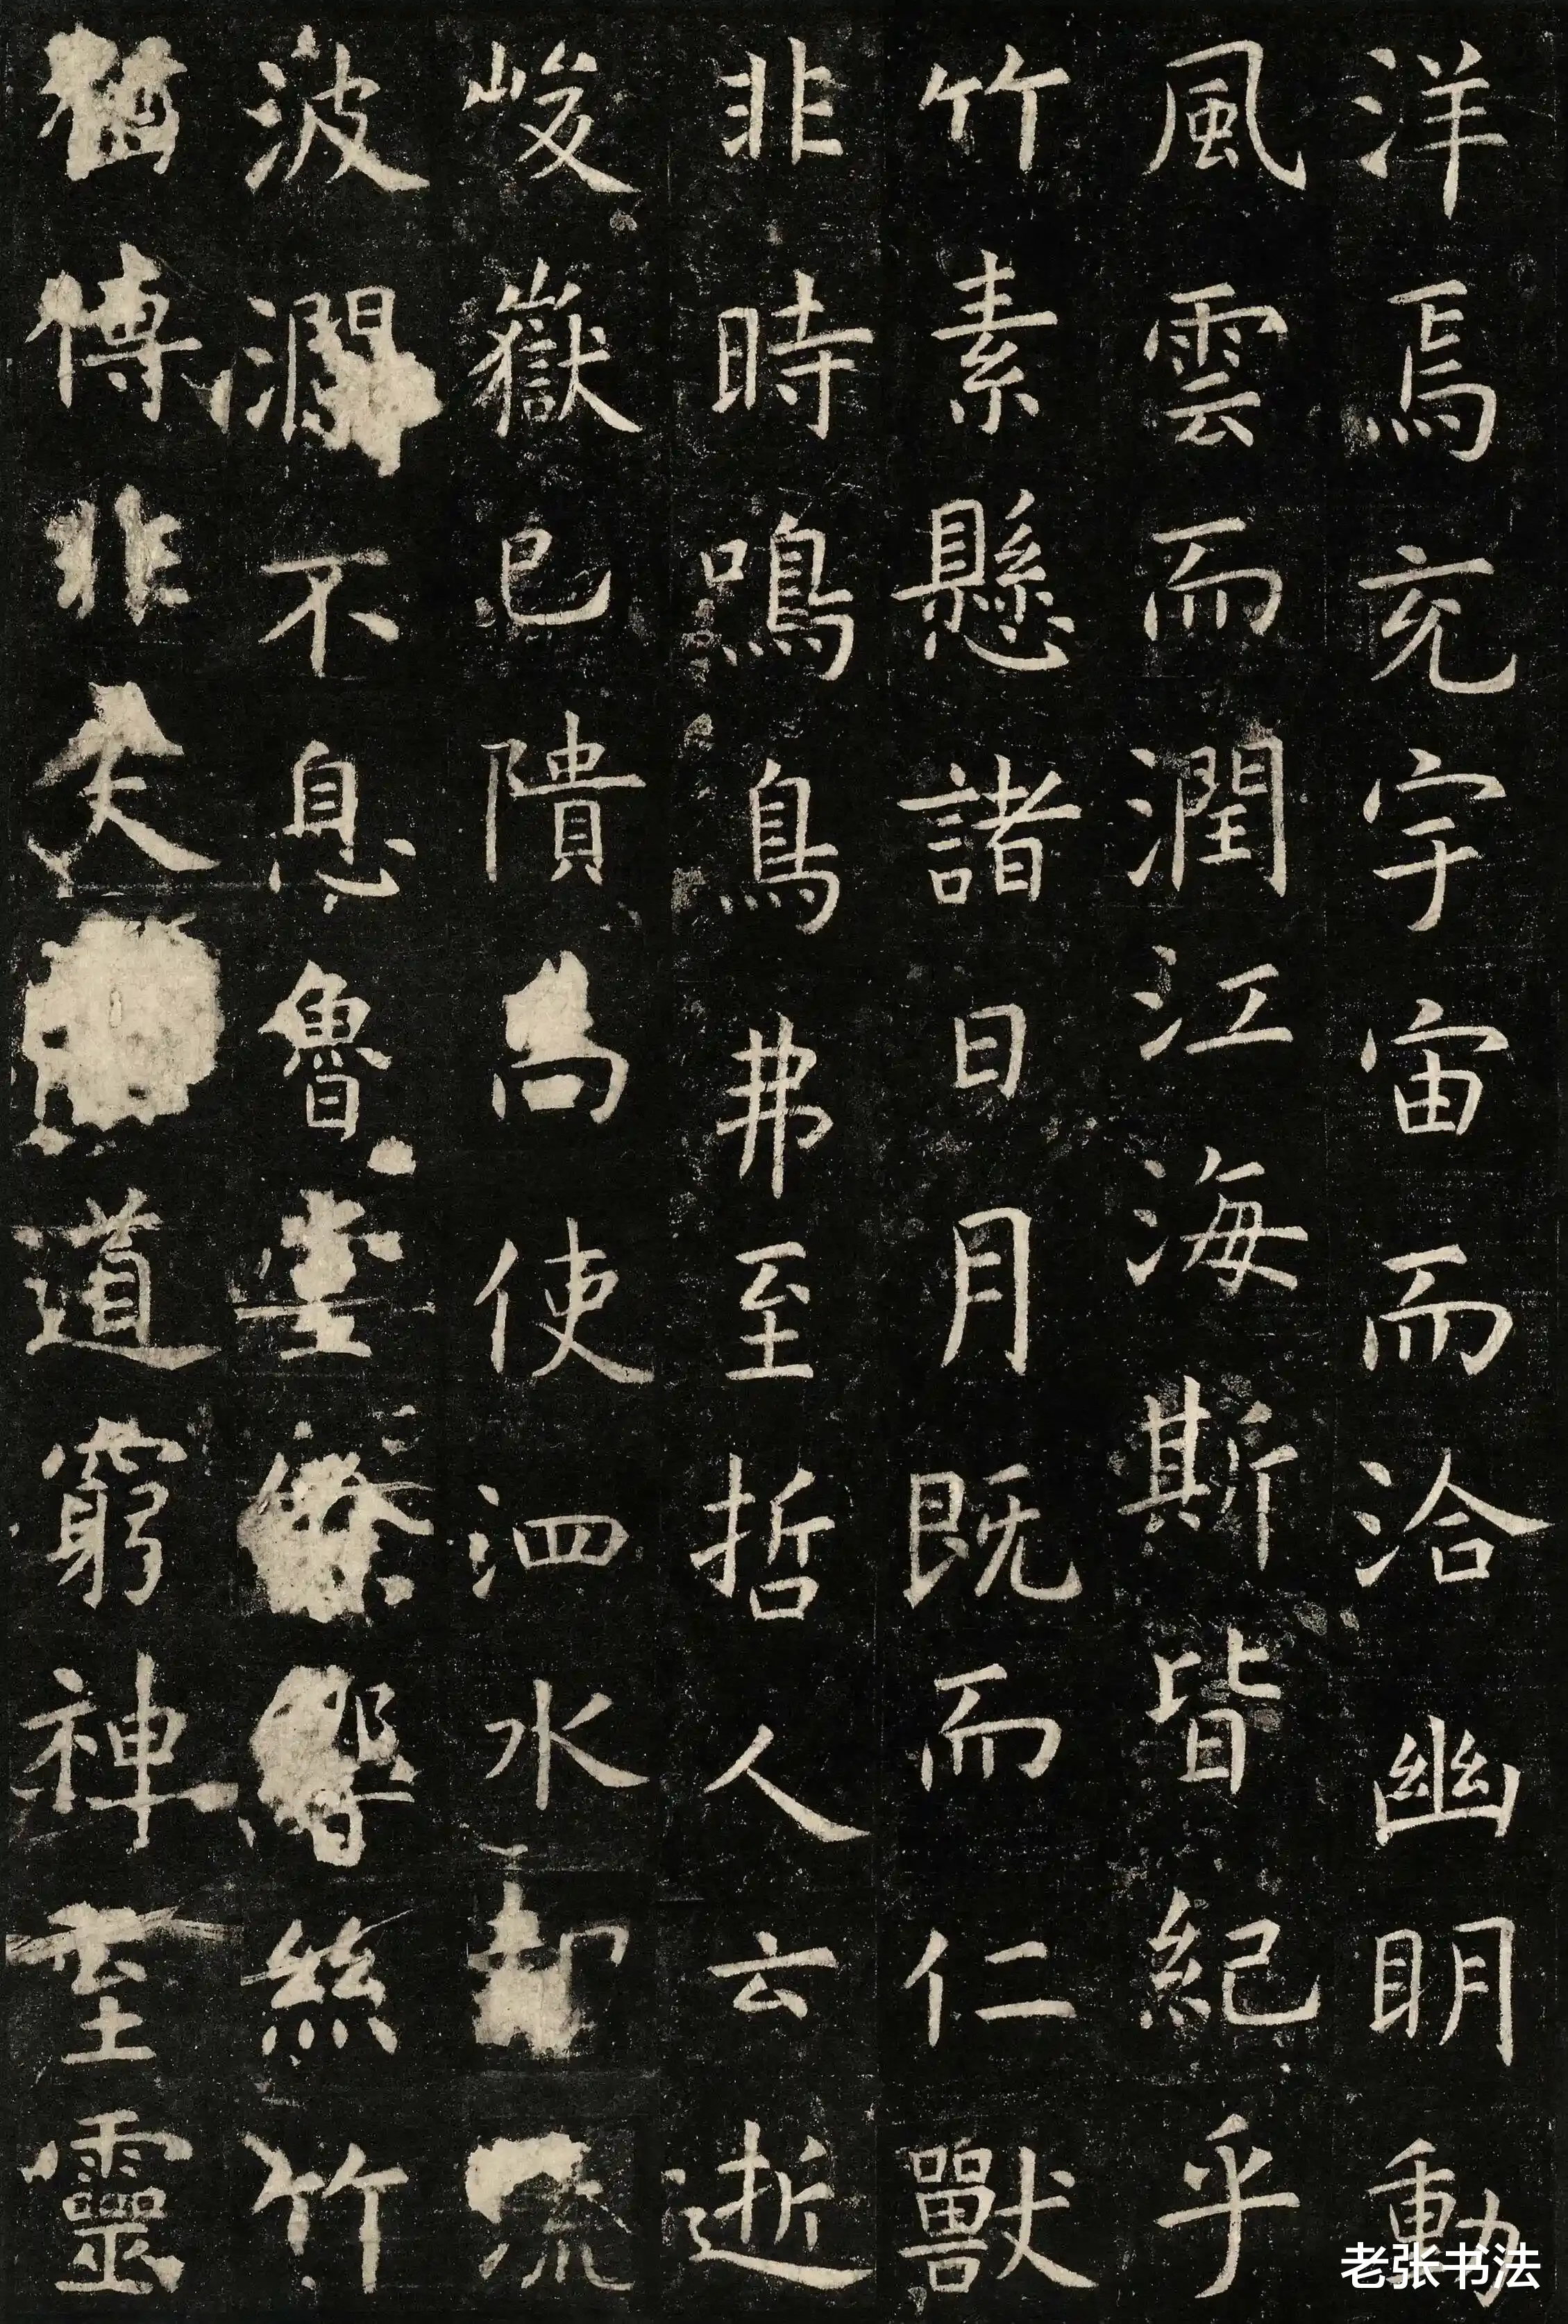 洋焉充宇宙而洽幽明動
風雲而潤江海斯皆紀乎
竹素懸諸日月既而仁獸
非時鳴鳥弗至哲人云逝
峻嶽已隤尚使泗水却流
波瀾不息魯堂餘響絲竹
猶傳非夫道窮神至靈
老张书法